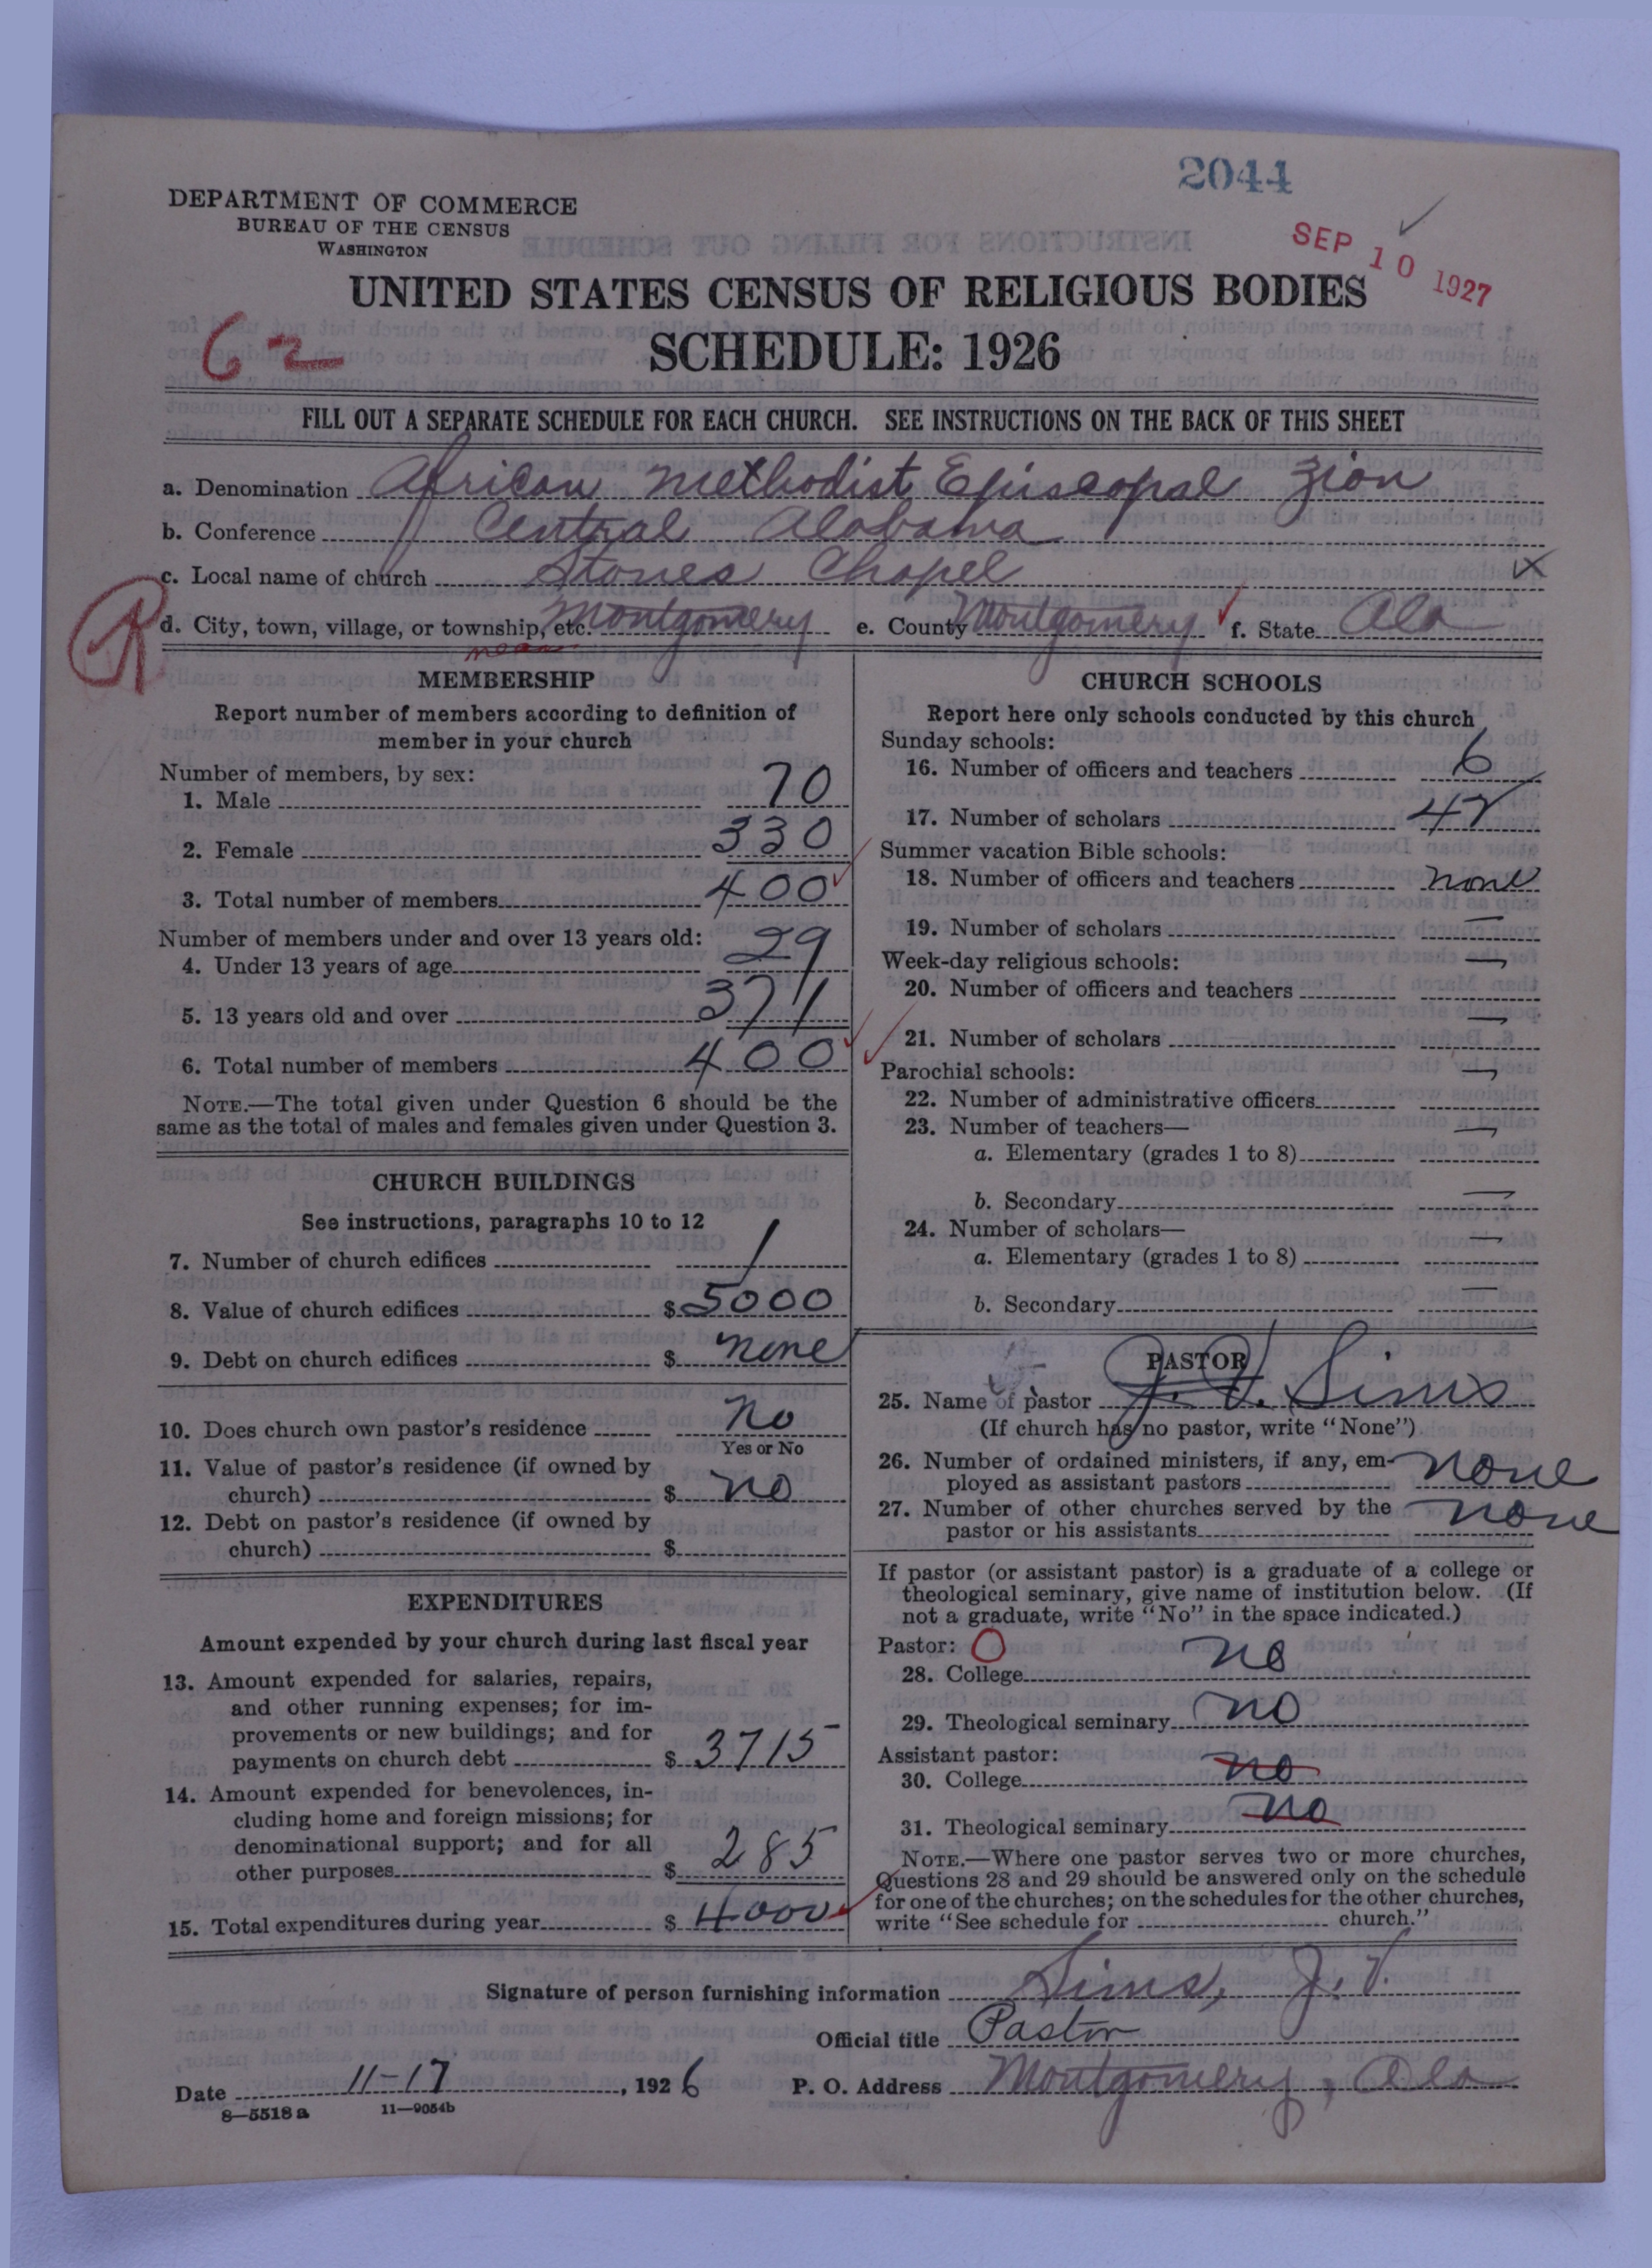 2044
DEPARTMENT OF COMMERCE
BUREAU OF THE CENSUS
WASHINGTON
SEP 10 1927
UNITED STATES CENSUS OF RELIGIOUS BODIES
SCHEDULE: 1926
62
FILL OUT A SEPARATE SCHEDULE FOR EACH CHURCH. SEE INSTRUCTIONS ON THE BACK OF THIS SHEET
a. Denomination African Methodist Episcopal Zion
b. Conference Central Alabama
c. Local name of church Stones Chapel x
R
d. City, town, village, or township, etc. Montgomery e. County Montgomery f. State Ala
near
MEMBERSHIP
Report number of members according to definition of
member in your church
Number of members, by sex:
1. Male 70
2. Female 330
3. Total number of members 400
Number of members under and over 13 years old:
4. Under 13 years of age 29
5. 13 years old and over 371
6. Total number of members 400
NOTE.—The total given under Question 6 should be the
same as the total of males and females given under Question 3.
CHURCH BUILDINGS
See instructions, paragraphs 10 to 12
7. Number of church edifices 1
8. Value of church edifices $ 5000
9. Debt on church edifices $ none
10. Does church own pastor's residence No
Yes or No
11. Value of pastor's residence (if owned by
church) $ no
12. Debt on pastor's residence (if owned by
church) $
EXPENDITURES
Amount expended by your church during last fiscal year
13. Amount expended for salaries, repairs,
and other running expenses; for im-
provements or new buildings; and for
payments on church debt $ 3715
14. Amount expended for benevolences, in-
cluding home and foreign missions; for
denominational support; and for all
other purposes $ 285
15. Total expenditures during year $ 4000
CHURCH SCHOOLS
Report here only schools conducted by this church
Sunday schools:
16. Number of officers and teachers 6
17. Number of scholars
Summer vacation Bible schools:
18. Number of officers and teachers none
19. Number of scholars —
Week-day religious schools: —
20. Number of officers and teachers
—
21. Number of scholars
Parochial schools: —
22. Number of administrative officers
23. Number of teachers— —
a. Elementary (grades 1 to 8)
b. Secondary —
24. Number of scholars— —
a. Elementary (grades 1 to 8)
b. Secondary —
PASTOR
25. Name of pastor J. V. Sims
(If church has no pastor, write "None")
26. Number of ordained ministers, if any, em-
ployed as assistant pastors none
27. Number of other churches served by the
pastor or his assistants none
If pastor (or assistant pastor) is a graduate of a college or
theological seminary, give name of institution below. (If
not a graduate, write "No" in the space indicated.)
Pastor: O
28. College no
29. Theological seminary no
Assistant pastor:
30. College no
31. Theological seminary no
NOTE.—Where one pastor serves two or more churches,
Questions 28 and 29 should be answered only on the schedule
for one of the churches; on the schedules for the other churches,
write "See schedule for church."
Signature of person furnishing information Sims, J. V.
Official title Pastor
Date 11-17, 1926 P. O. Address Montgomery, Ala
8—5518 a 11—9054b